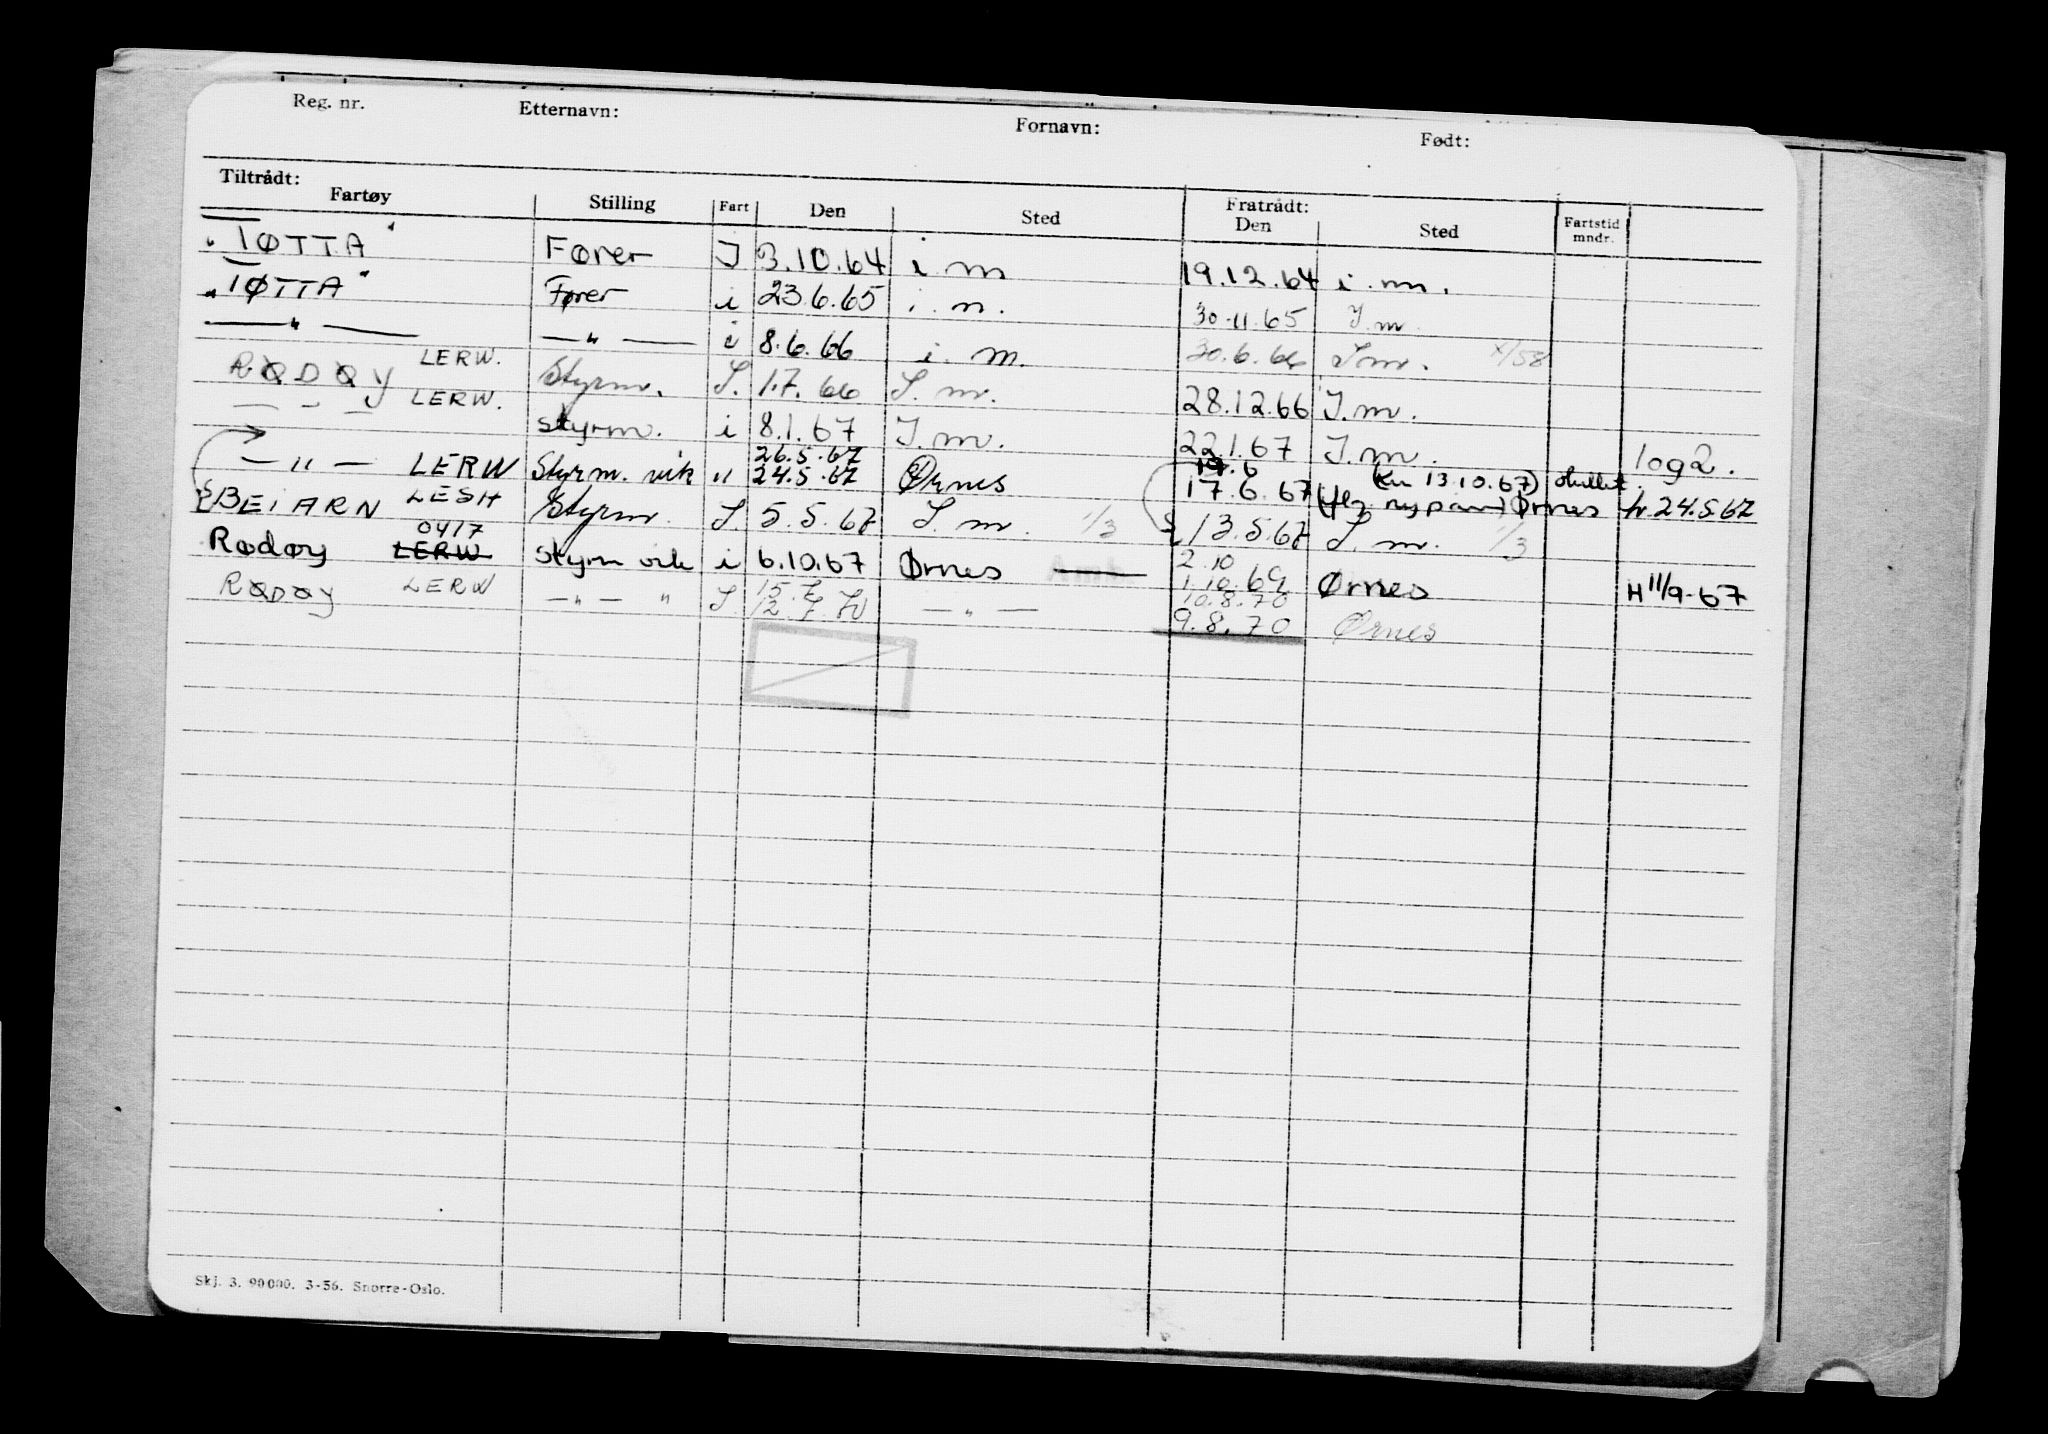 Reg. nr. Etternavn: Fornavn: Født:
Tiltrådt: Fratrådt:
Fartøy Stilling Fart Den Sted Den Sted Fartstid mndr.
"TØTTA" Fører I 3.10.64 i m 19.12.64 i.m.
"TØTTA" Fører i 23.6.65 i.n. 30.11.65 I.m.
— " — — " — i 8.6.66 i. m. 30.6.66 I m. X/58
RØDØY LERW. Styrm. I. 1.7.66 I. m. 28.12.66 I.m.
— " — LERW. styrm. i 8.1.67 I.m. 22.1.67 I.m. log2.
26.5.67 19.6 (Kn 13.10.67)
— " — LERW Styrm. vik " 24.5.67 Ørnes 17.6.67 Ørnes fr.24.5.67
BEIARN LESH Styrm. I. 5.5.67 I m. 1/3 13.5.67 I. m. 1/3
0417 2.10
Rødøy LERW styrm vik i 6.10.67 Ørnes 1.10.69 Ørnes H 11/9-67
15.7 10.8.70
RØDØY LERW — " — " I. 12.7.70 — " — 9.8.70 Ørnes
Skj. 3. 90000. 3-56. Snorre-Oslo.